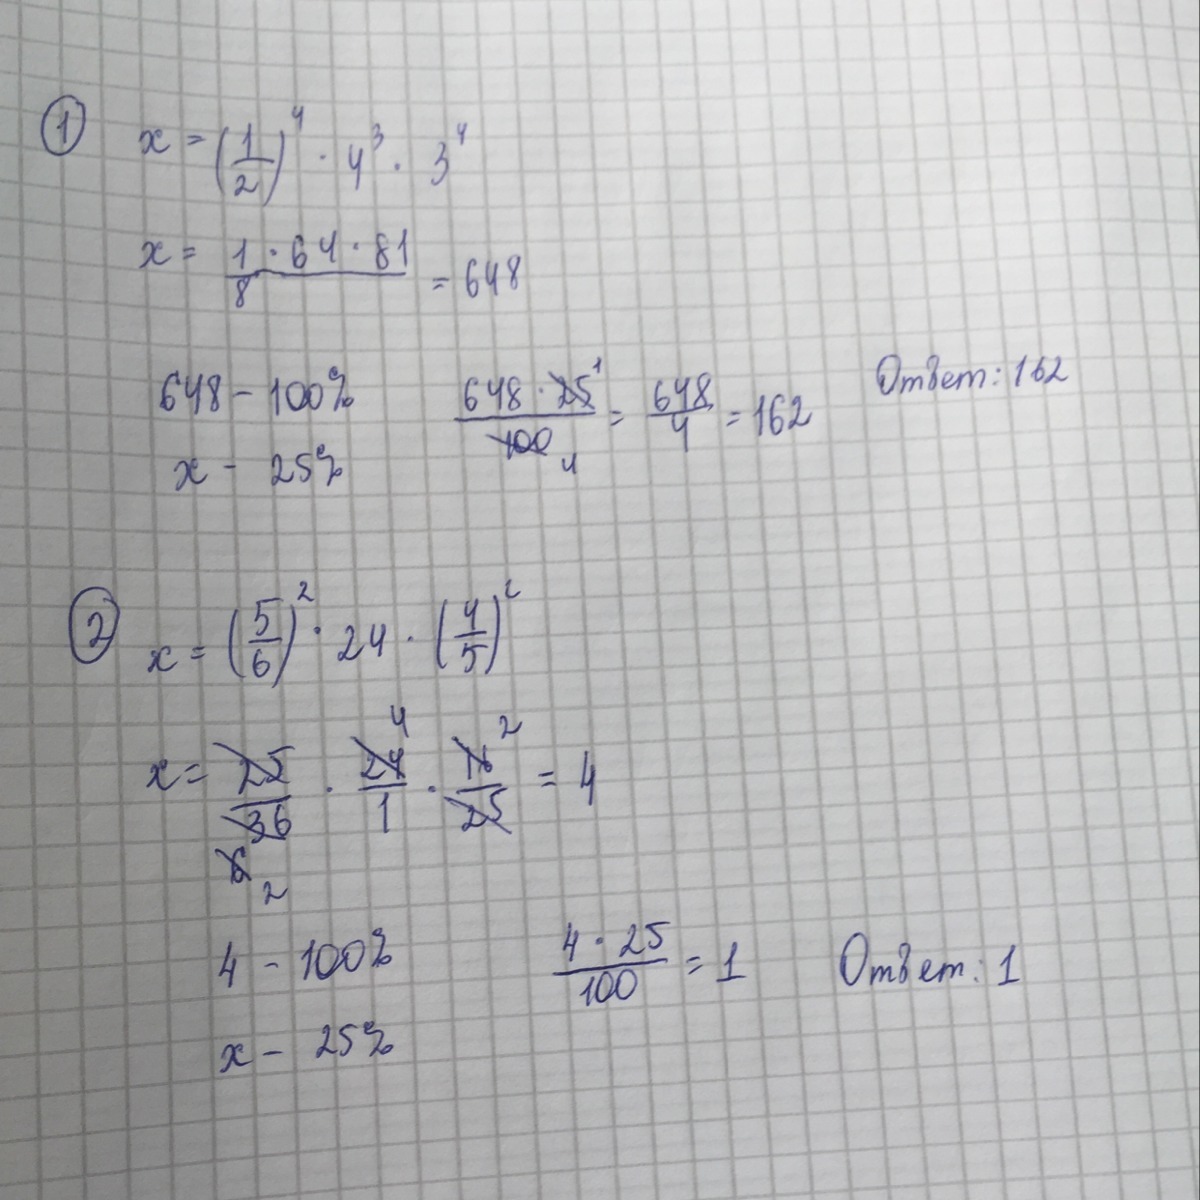 ① x = (1/2)^4 · 4^3 · 3^4
x = 1 · 64 · 81 / 8 = 648
648 – 100% 648 · 25 1 / 100 4 = 648/4 = 162 Ответ: 162
x – 25%
② x = (5/6)^2 · 24 · (4/5)^2
x = 25/36 6 2 · 24 4/1 · 16 2/25 = 4
4 – 100% 4 · 25 / 100 = 1 Ответ: 1
x – 25%